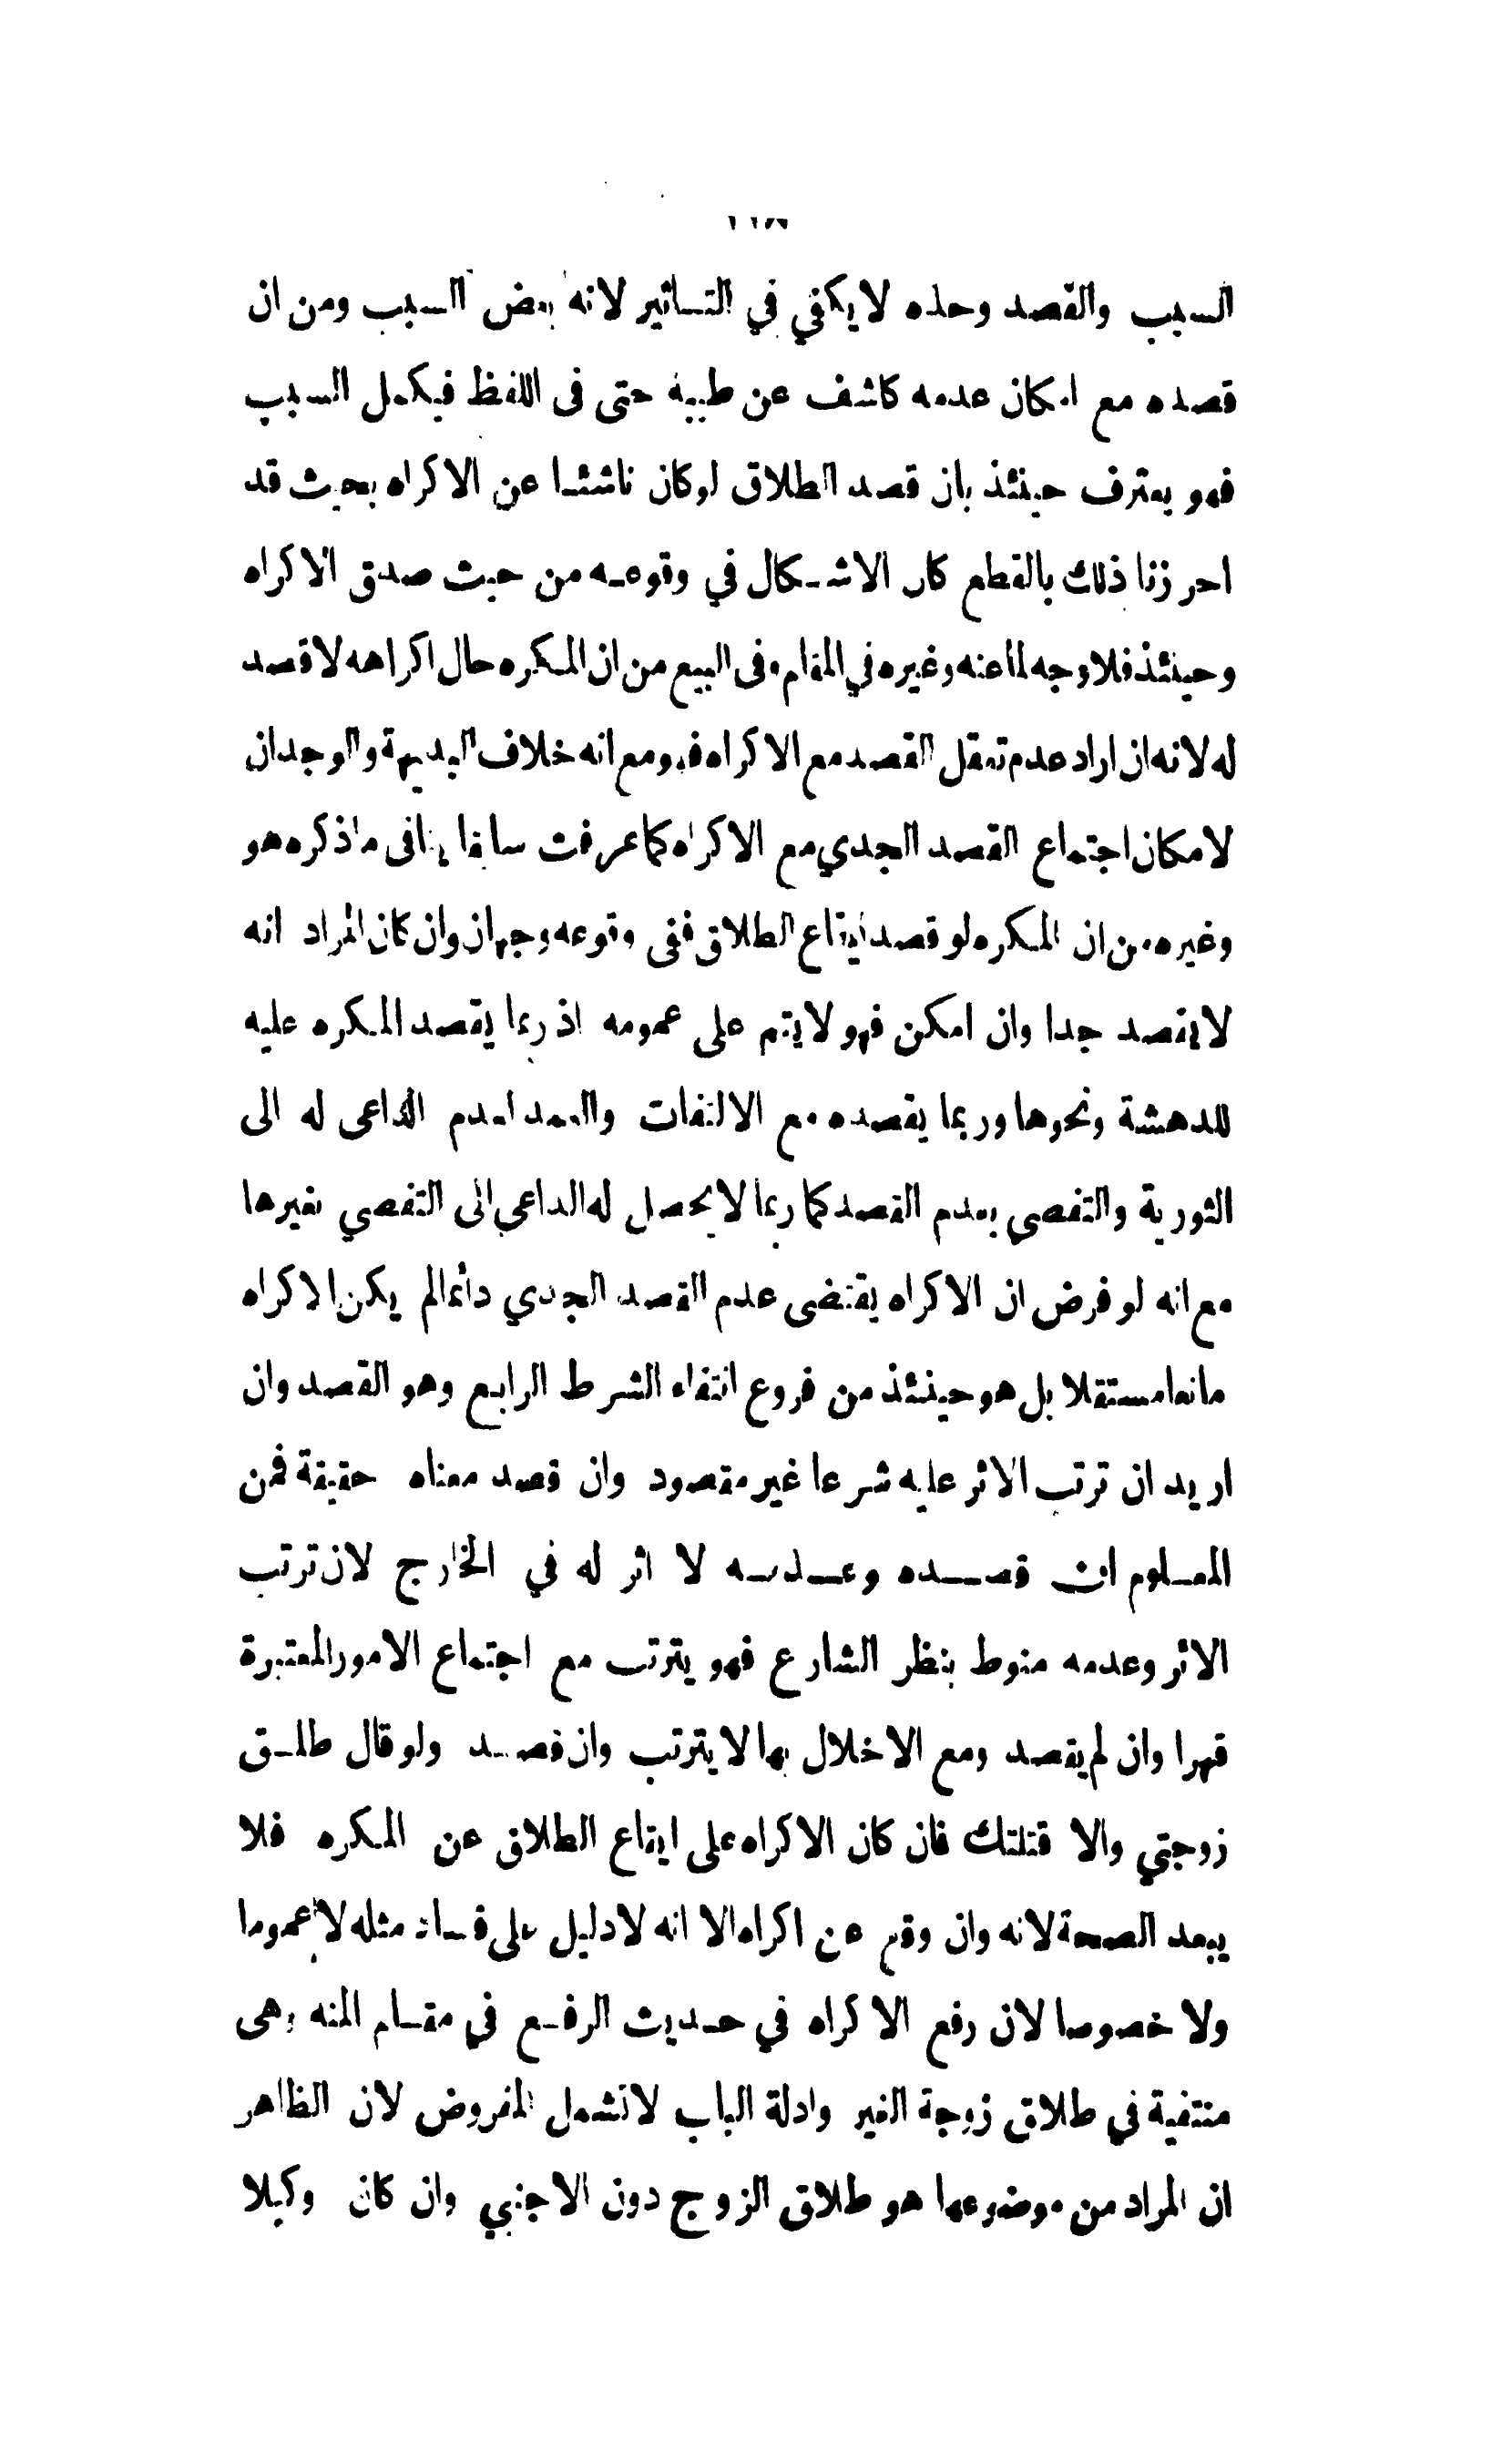 السبب والقصد وحده لا يكفي في التأثير لانه بعض السبب ومن ان
قصده مع امكان عدمه كاشف عن طيبه حتى فى اللفظ فيكمل السبب
فهو يعترف حينئذ بان قصد الطلاق لو كان ناشئا عن الاكراه بحيث قد
احرزنا ذلك بالقطع كان الاشكال في وقوعه من حيث صدق الاكراه
وحينئذ فلا وجه لما عنه وغيره في المقام وفى البيع من ان المكره حال اكراهه لا قصد
له لانه ان اراد عدم تعقل القصد مع الاكراه فهو مع انه خلاف البديهة والوجدان
لامكان اجتماع القصد الجدي مع الاكراه كما عرفت سابقا ينافى ما ذكره هو
وغيره من ان المكره لو قصد ايقاع الطلاق ففى وقوعه وجهان وان كان المراد انه
لا يقصد جدا وان امكن فهو لا يتم على عمومه اذ ربما يقصد المكره عليه
للدهشة ونحوها وربما يقصده مع الالتفات والعمد لعدم الداعى له الى
التورية والتفصي بعدم القصد كما ربما لا يحصل له الداعي الى التفصي بغيرها
مع انه لو فرض ان الاكراه يقتضى عدم القصد الجدي دائما لم يكن الاكراه
مانعا مستقلا بل هو حينئذ من فروع انتفاء الشرط الرابع وهو القصد وان
اريد ان ترتب الاثر عليه شرعا غير مقصود وان قصد معناه حقيقة فمن
المعلوم ان قصده وعدمه لا اثر له في الخارج لان ترتب
الاثر وعدمه منوط بنظر الشارع فهو يترتب مع اجتماع الامور المعتبرة
قهرا وان لم يقصد ومع الاخلال بها لا يترتب وان قصد ولو قال طلق
زوجتي والا قتلتك فان كان الاكراه على ايقاع الطلاق عن المكره فلا
يبعد الصحة لانه وان وقع عن اكراه الا انه لا دليل على فساد مثله لا عموما
ولا خصوصا لان رفع الاكراه في حديث الرفع في مقام المنه وهى
منتفية في طلاق زوجة الغير وادلة الباب لا تشمل المفروض لان الظاهر
ان المراد من موضوعها هو طلاق الزوج دون الاجنبي وان كان وكيلا